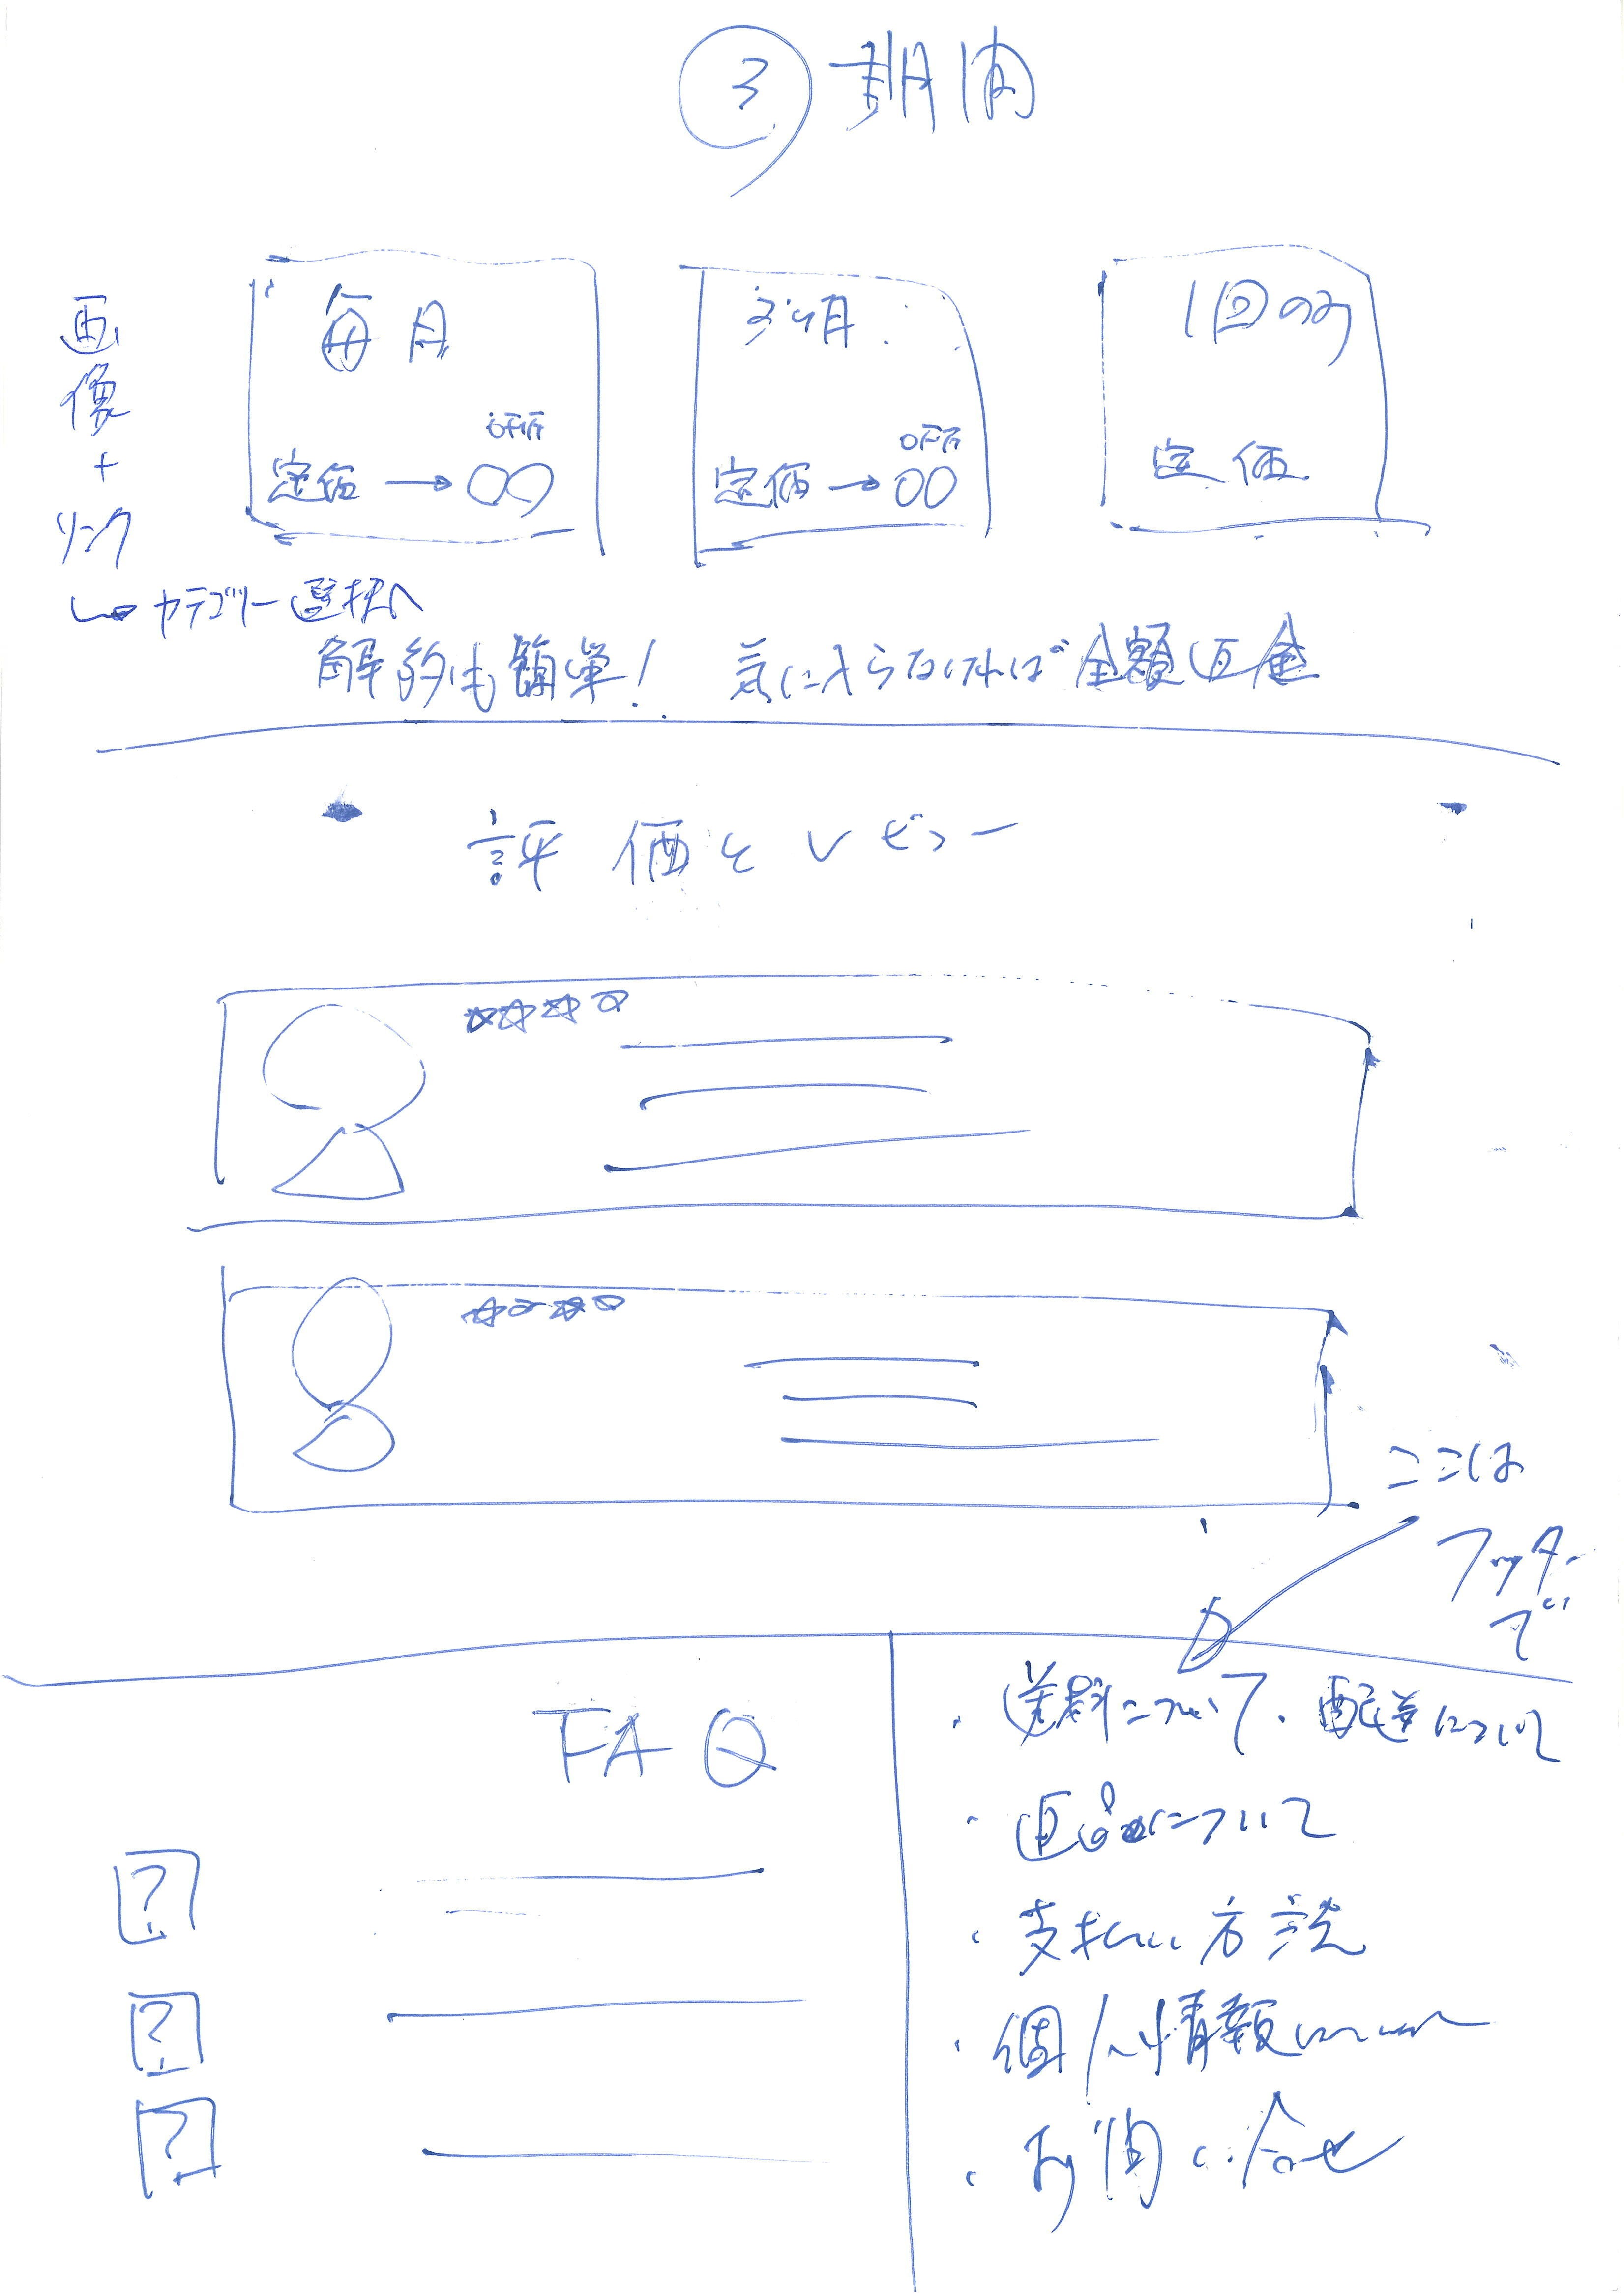 ③ 期間
画像+リンク
毎月
OFF
定価→〇〇
3ヶ月
OFF
定価→〇〇
1回のみ
定価
↳カテゴリー選択へ
解約も簡単! 気に入らなければ全額返金
評価とレビュー
☆☆☆☆
☆☆☆☆
ここは
フッター
で
FAQ
?
?
?
・送料について ・配送について
・返品について
・支払い方法
・個人情報
・お問い合せ